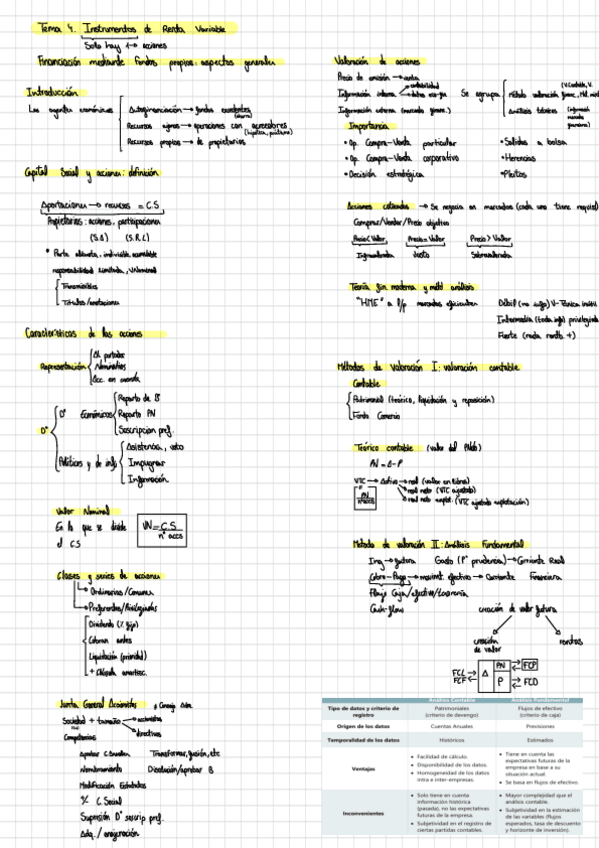 Tema 4. Instrumentos de Renta Variable
Solo hay 1 → acciones
Financiación mediante fondos propios: aspectos generales
Introducción
Los agentes económicos
Autofinanciación → fondos existentes
(ahorro)
Recursos ajenos → operaciones con acreedores
Recursos propios → de propietarios
Capital Social y acciones: definición
Aportaciones → recursos = C.S
Propietarios: acciones, participaciones
(S.A) (S.R.L)
• Parte alícuota, indivisible, acumulable
responsabilidad limitada, V.Nominal
Transmisibles
Títulos/anotaciones
Características de las acciones
Representación
Al portador
Nominativas
Acc. en cuenta
Dº
Dº Económicos
Reparto de B
Reparto PN
Suscripción pref.
Políticos y de info
Asistencia, voto
Impugnar
Información
Valor Nominal
En lo que se divide
el C.S
VN = C.S / nº accs
Clases y series de acciones
Ordinarias/Comunes
Preferentes/Privilegiadas
Dividendo (% fijo)
Cobran antes
Liquidación (prioridad)
+ Cláusula amortizac.
Junta General Accionistas
Sociedad + tamaño → accionistas
directivos
Competencias
Aprobar C. Anuales
Transformar, fusión, etc
Nombramiento
Disolución/aprobar B
Modificación Estatutos
C. Social
Supresión Dº suscrip pref.
Adq. / enajenación
Valoración de acciones
Precio de emisión → venta
Información interna
contabilidad
Se agrupa
método valoración
Análisis técnicos
Información externa (mercado financ.)
Importancia
• Op. Compra-Venta particular
• Salidas a bolsa
• Op. Compra-Venta corporativo
• Herencias
• Decisión estratégica
• Pleitos
Acciones cotizadas → Se negocia en mercados (cada uno tiene
Comprar/Vender/Precio objetivo
Precio < Valor
Precio = Valor
Precio > Valor
Infravalorada
Justo
Sobrevalorada
Teoría fin. moderna y métd análisis
"HME" a l/p mercados eficientes
Débil
Intermedia
Fuerte
Métodos de Valoración I: valoración contable
Contable
Patrimonial (teórico, liquidación y reposición)
Fondo Comercio
Teórico contable (valor del PNeto)
PN = A - P
VTC → Activo → real (valor en libros)
real neto (VTC ajustado)
real neto explot. (VTC ajustado explotación)
Método de valoración II: Análisis Fundamental
Ing → futura Gasto (Pº prudencia) → Corriente Real
Cobro - Pago → movimt. efectivo → Corriente Financiera
Flujo Caja/efectivo/tesorería
Cash-flow
creación de valor futura
creación
de valor
rentas
FCL
FCF
A
PN
P
FCP
FCD
Análisis Contable
Análisis Fundamental
Tipo de datos y criterio de registro
Patrimoniales (criterio de devengo)
Flujos de efectivo (criterio de caja)
Origen de los datos
Cuentas Anuales
Previsiones
Temporalidad de los datos
Históricos
Estimados
Ventajas
• Facilidad de cálculo.
• Disponibilidad de los datos.
• Homogeneidad de los datos intra e inter-empresas.
• Tiene en cuenta las expectativas futuras de la empresa en base a su situación actual.
• Se basa en flujos de efectivo.
Inconvenientes
• Solo tiene en cuenta información histórica (pasada), no las expectativas futuras de la empresa.
• Subjetividad en el registro de ciertas partidas contables.
• Mayor complejidad que el análisis contable.
• Subjetividad en la estimación de las variables (flujos esperados, tasa de descuento y horizonte de inversión).